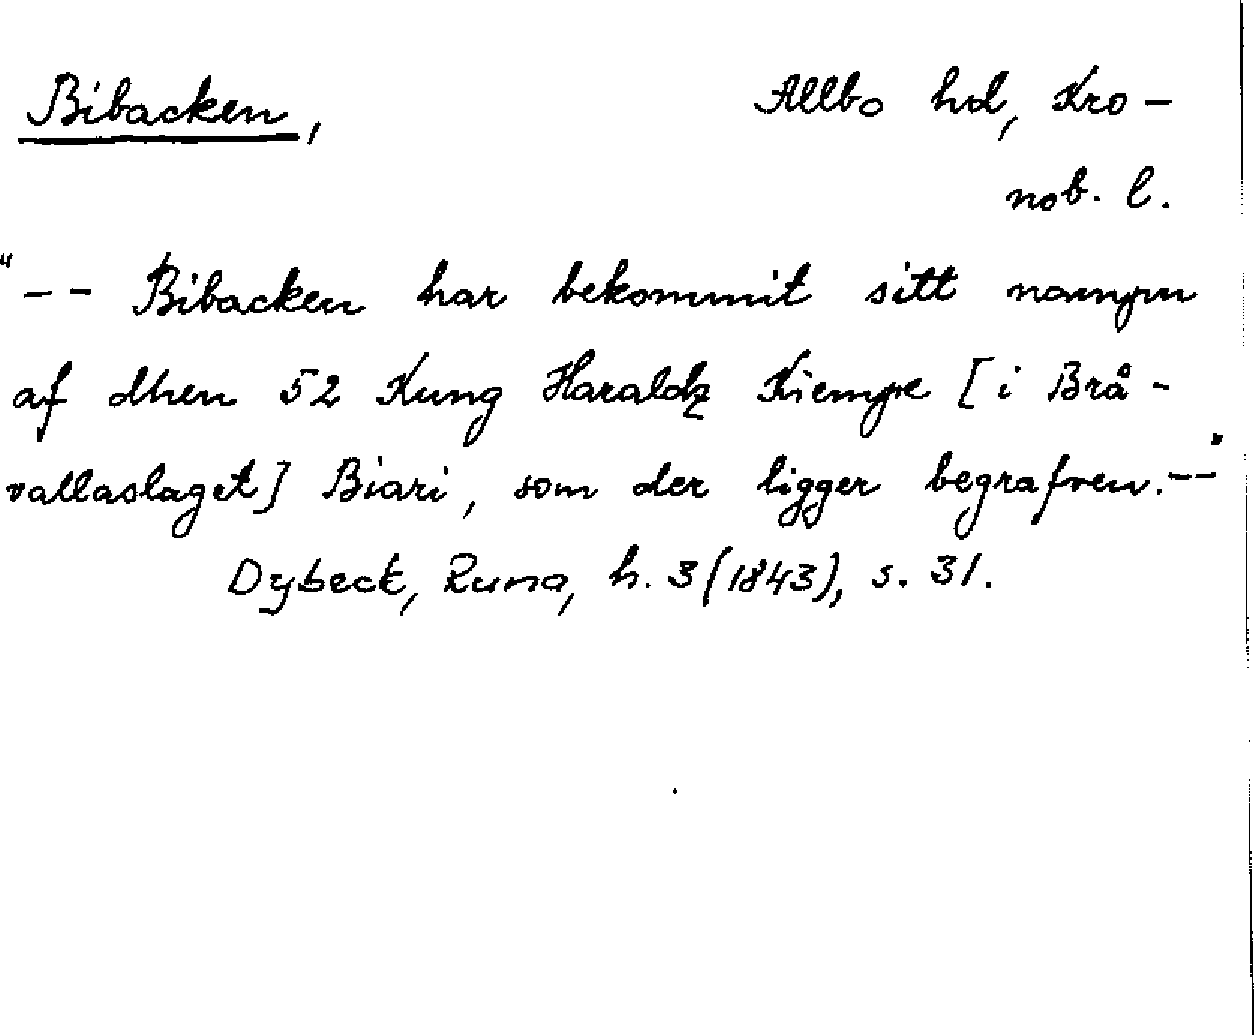 Bibacken, Allbo hd, Kro-
nob. l.
"-- Bibacken har bekommit sitt nampn
af dhen 52 Kung Haraldz Kiempe [i Brå-
vallaslaget] Biari, som der ligger begrafven.--"
Dybeck, Runa, h. 3 (1843), s. 31.